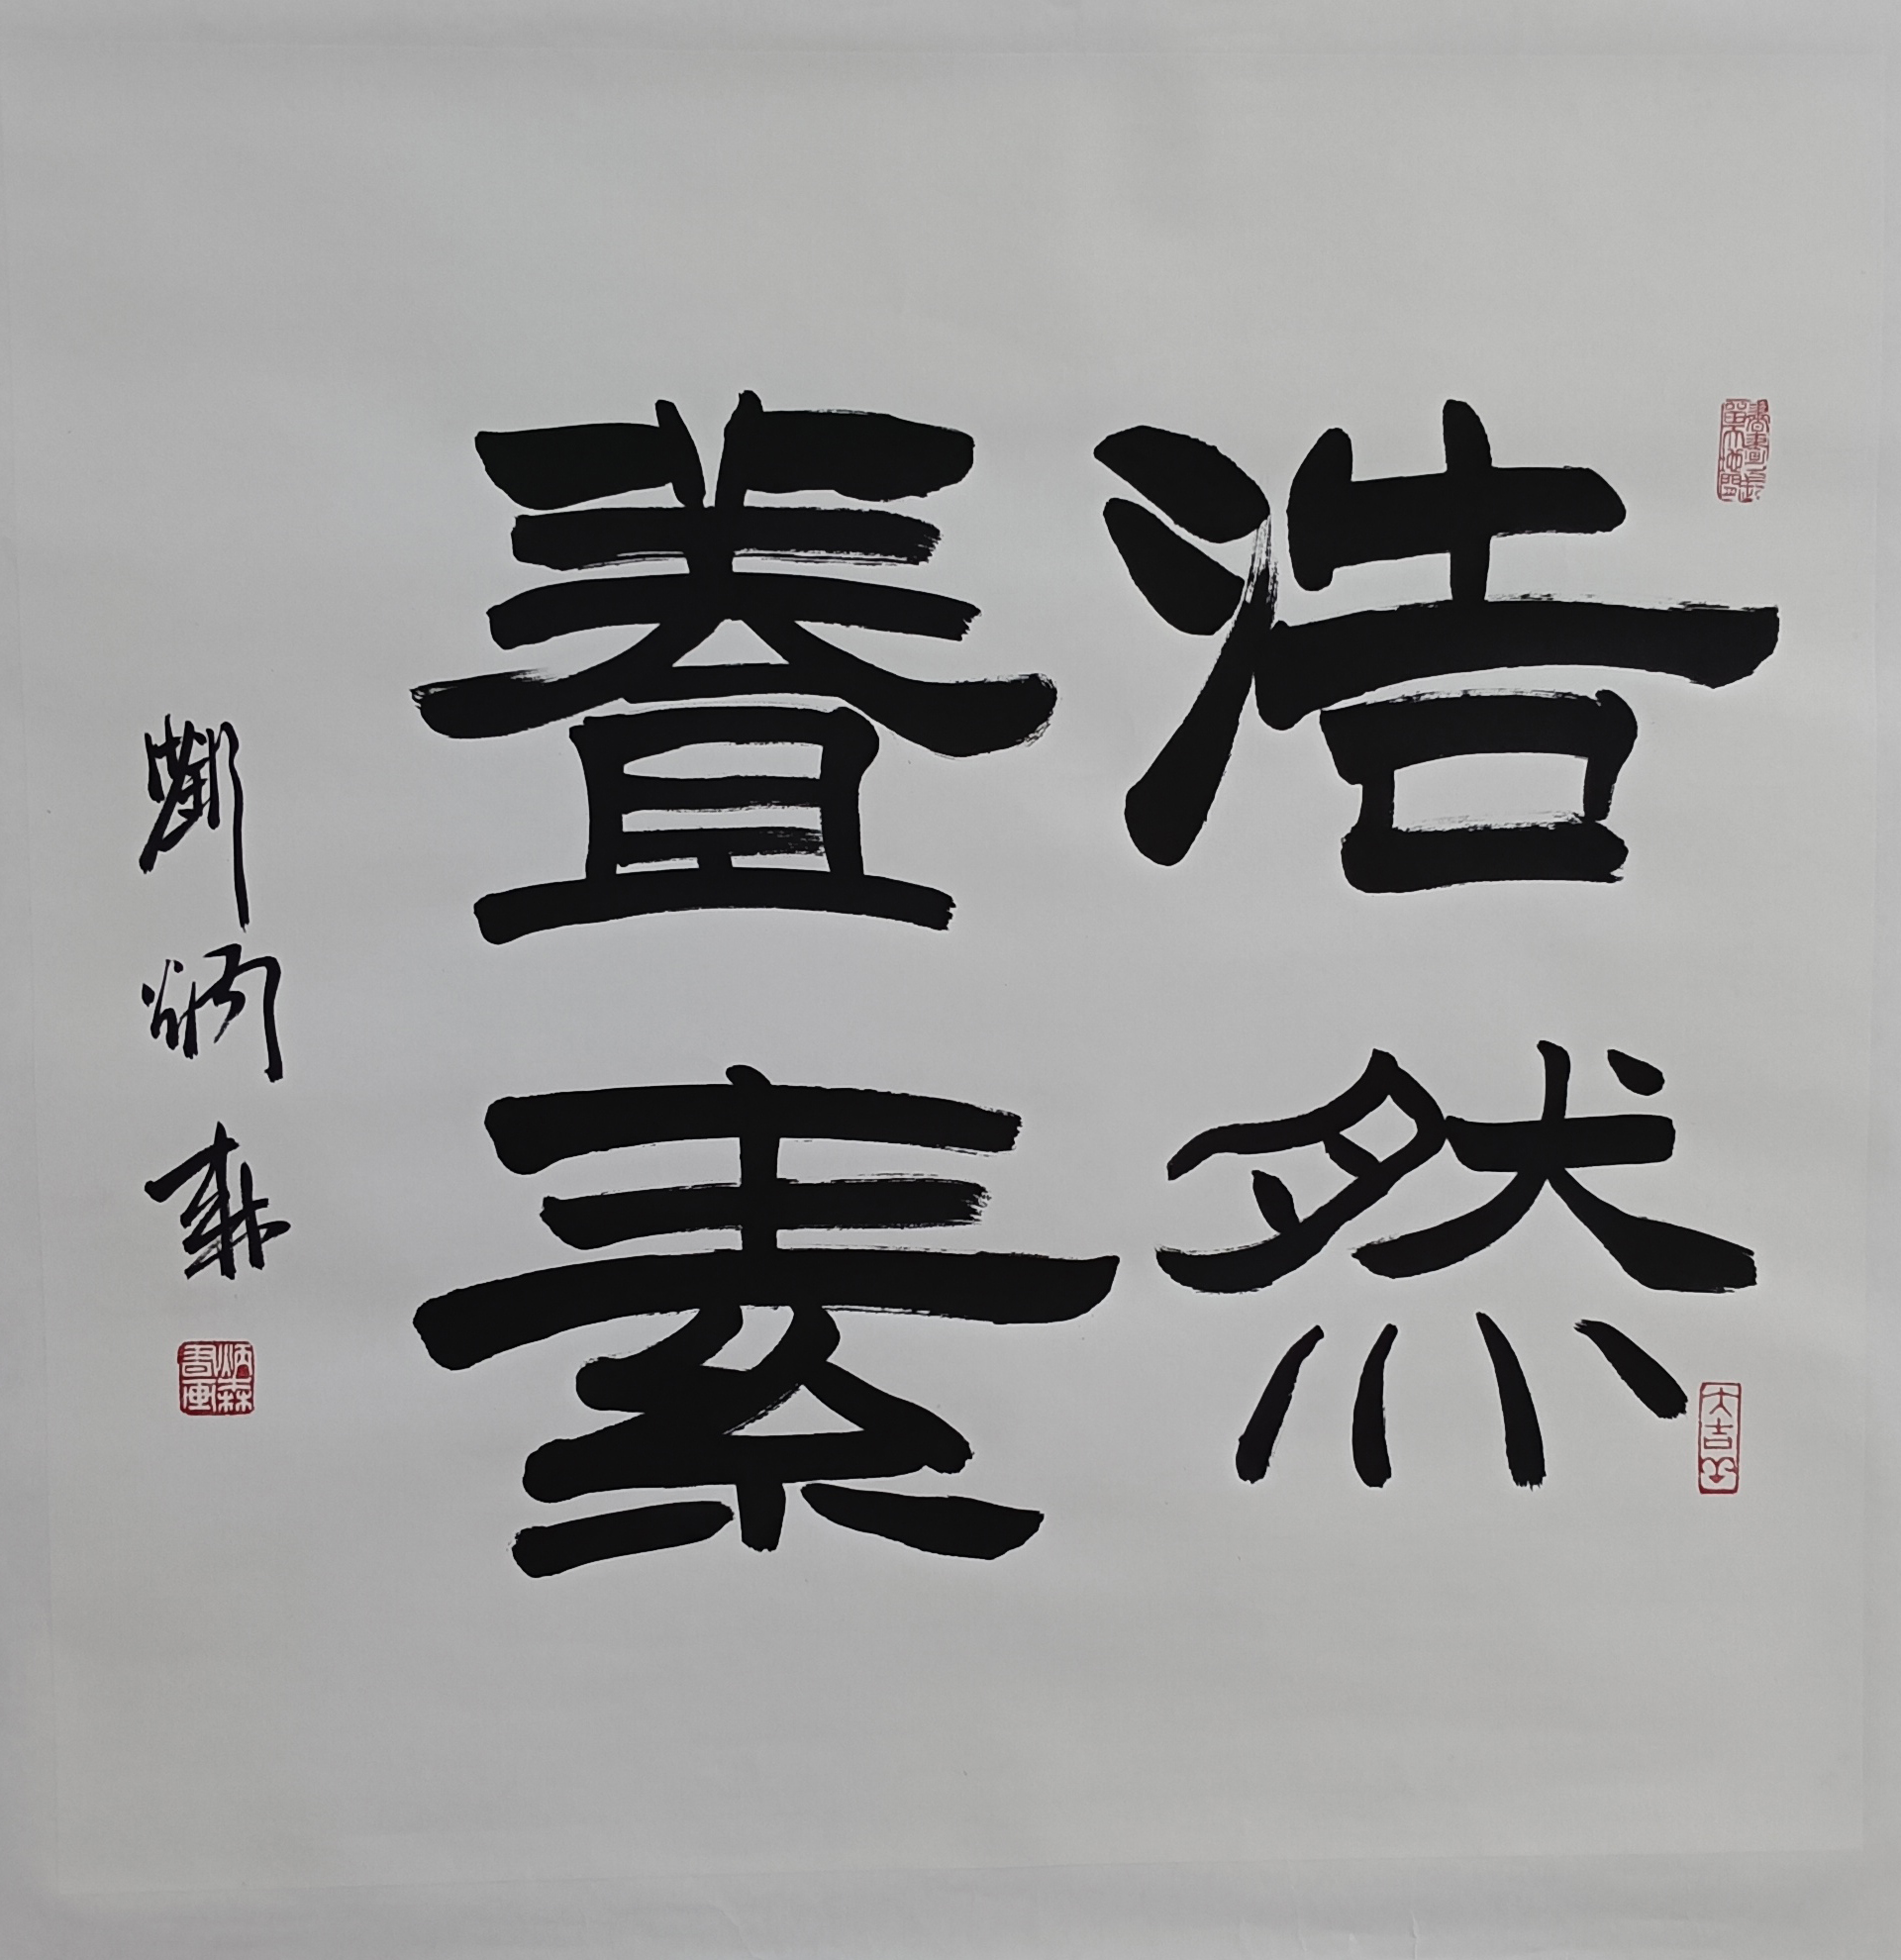 浩然
養素
劉炳森
炳森
書画
大吉羊